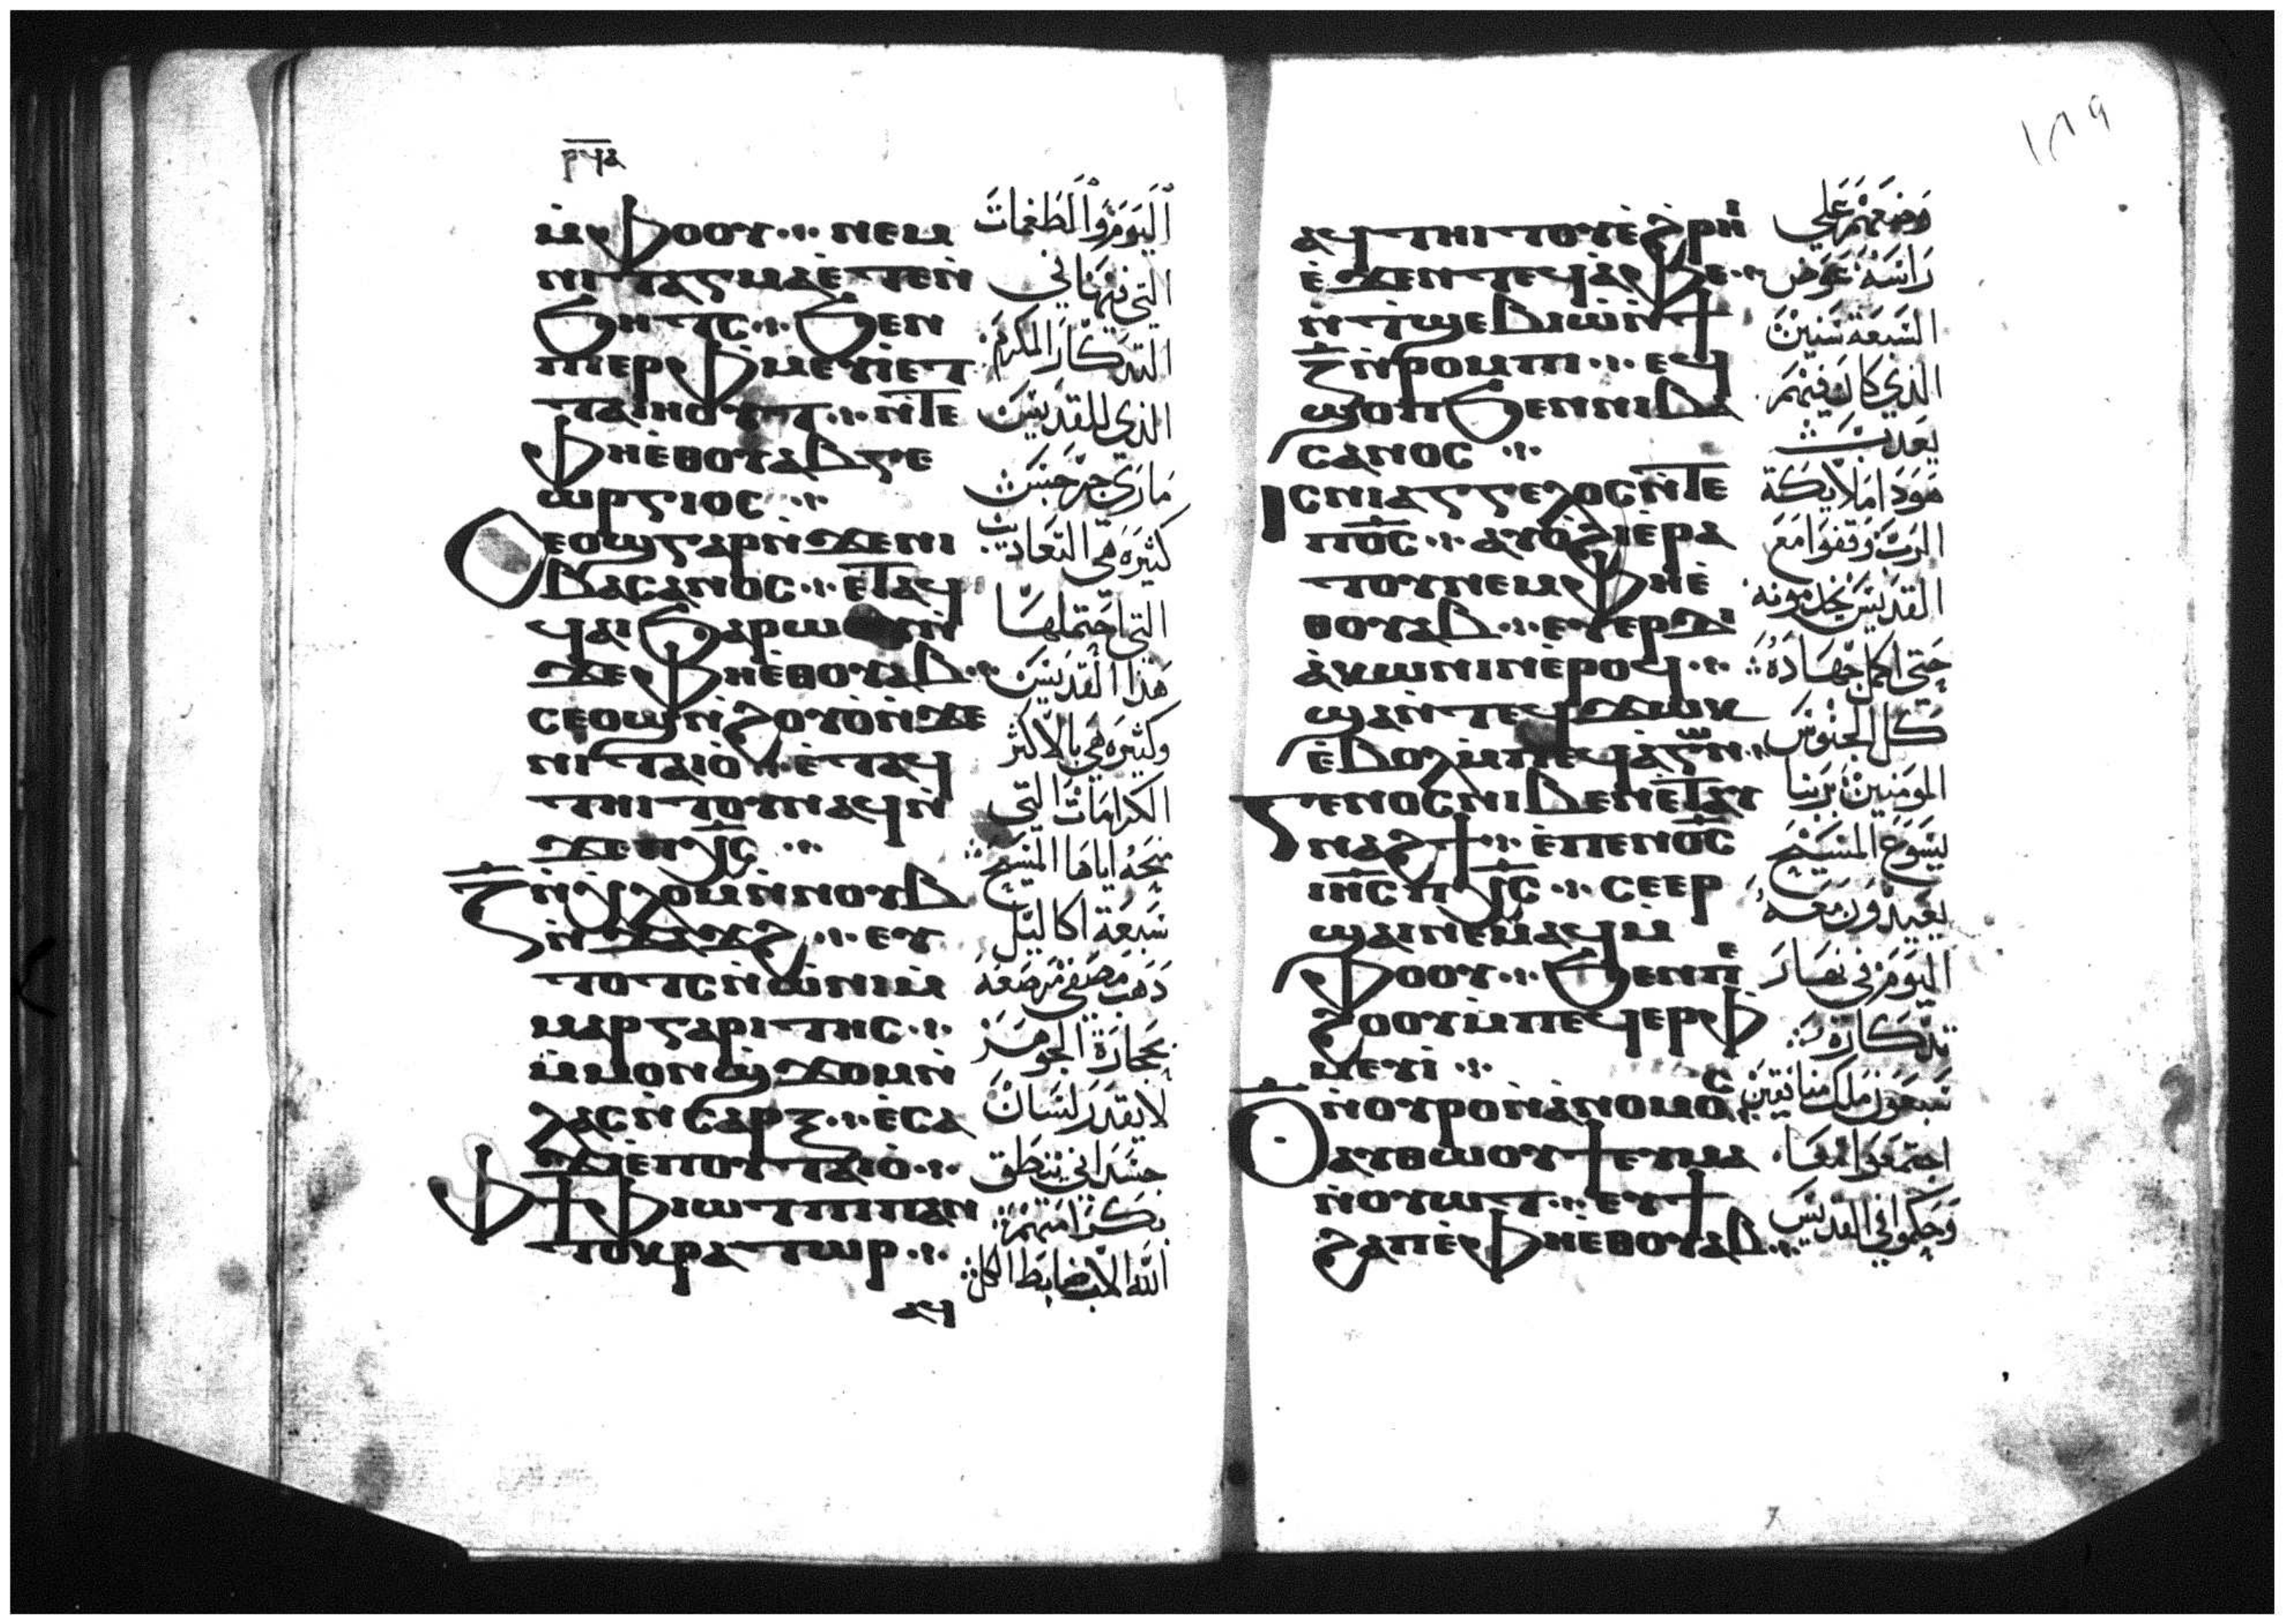 ⲣϥⲁ
ⲙ̀ⲫⲟⲟⲩ ⲛⲉⲙ
ⲛⲓⲧⲁⲅⲙⲁ ⲉ̀ⲧⲉⲛ̀
ϧⲏⲧⲥ ϧⲉⲛ
ⲡⲓⲉⲣⲫⲙⲉⲩⲓ̀ ⲉⲧ
ⲧⲁⲓⲏⲟⲩⲧ ⲛ̀ⲧⲉ
ⲫⲏⲉ̀ⲑⲟⲩⲁⲃ ⲅⲉ
ⲱⲣⲅⲓⲟⲥ
ⲥⲉⲟϣ ⲅⲁⲣ ⲛ̀ϫⲉ ⲛⲓ
ⲃⲁⲥⲁⲛⲟⲥ ⲉ̀ⲧⲁϥ
ϥⲁⲓ ϧⲁⲣⲱⲟⲩ ⲛ̀
ϫⲉ ⲫⲏⲉ̀ⲑⲟⲩⲁⲃ
ⲥⲉⲟϣ ⲛ̀ϩⲟⲩⲟ̀ ⲛ̀ϫⲉ
ⲛⲓⲧⲁⲓⲟ̀ ⲉ̀ⲧⲁϥ
ⲧⲏⲓⲧⲟⲩ ⲛⲁϥ ⲛ̀
ϫⲉ ⲡⲭ̅ⲥ̅
ⲍ̅ ⲛ̀ⲭⲗⲟⲙ ⲛ̀ⲛⲟⲩⲃ
ⲛ̀ϫⲗϫⲗ ⲉⲩ
ⲧⲟⲧⲥ ⲛ̀ⲱ̀ⲛⲓ ⲙ̀
ⲙⲁⲣⲅⲁⲣⲓⲧⲏⲥ
ⲙ̀ⲙⲟⲛ ϣ̀ϫⲟⲙ ⲛ̀
ⲗⲁⲥ ⲛ̀ⲥⲁⲣⲝ ⲉ̀ⲥⲁ
ϫⲓ ⲉ̀ⲡⲟⲩⲧⲁⲓⲟ̀
ⲫϯ ⲫⲓⲱⲧ ⲡⲓⲡⲁⲛ
ⲧⲟⲕⲣⲁⲧⲱⲣ
ⲁϥ
اَليَومَ وَالطَغمَاتَ
التي فيهَا في
التدكَارَ المكرَمَ
الذي للقدَيسَ
مَاري جرجيسَ
كثيرَة هي التعَاديب
التي احتملهَا
هَذا القدَيسَ
وكثيرَه هَي بالاكثر
الكرَامَاتَ التي
منحَهُ اياهَا المسيح
سَبعَة اكاليَل
دَهَب مصَفي مرصَعَه
بحجَارَة الجوهَر
لا يقدَر لسَانَ
جسَدَاني ينطق
بكرَامتهم
الله الاب ضابط الكل
١٨٩
ⲁϥⲧⲏⲓⲧⲟⲩ ⲉ̀ϩ̀ⲣⲏⲓ
ⲉ̀ϫⲉⲛ ⲧⲉϥⲁ̀ⲫⲉ
ⲛ̀ⲧ̀ϣⲉⲃⲓⲱ̀ ⲛ̀ϯ
ⲍ̅ ⲛ̀ⲣⲟⲙⲡⲓ ⲉϥ
ϣⲟⲡ ϧⲉⲛ ⲛⲓⲃⲁ
ⲥⲁⲛⲟⲥ
ⲓⲥ ⲛⲓⲁⲅⲅⲉⲗⲟⲥ ⲛ̀ⲧⲉ
ⲡ⳪ ⲁⲩⲟ̀ϩⲓ ⲉ̀ⲣⲁ
ⲧⲟⲩ ⲛⲉⲙ ⲫⲏⲉ̀
ⲑⲟⲩⲁⲃ ⲉⲩⲉⲣⲇⲓ
ⲁ̀ⲕⲱⲛⲓⲛ ⲉ̀ⲣⲟϥ
ϣⲁⲛ̀ⲧⲉϥϫⲱⲕ
ⲉ̀ⲃⲟⲗ ⲙ̀ⲡⲉϥⲁ̀ⲅⲱⲛ
ⲅⲉⲛⲟⲥ ⲛⲓⲃⲉⲛ ⲉ̀ⲧⲁⲩ
ⲛⲁϩϯ ⲉ̀ⲡⲉⲛⲟ̅ⲥ̅
ⲓⲏ̅ⲥ̅ ⲡⲭ̅ⲥ̅ ⲥⲉⲉⲣ
ϣⲁⲓ ⲛⲉⲙⲁϥ ⲙ̀
ⲫⲟⲟⲩ ϧⲉⲛ ⲡⲓⲉ̀
ϩⲟⲟⲩ ⲙ̀ⲡⲉϥⲉⲣⲫ
ⲙⲉⲩⲓ̀
ⲟ̅ ⲛ̀ⲟⲩⲣⲟ ⲛ̀ⲁⲛⲟⲙⲟⲥ
ⲁⲩⲑⲱⲟⲩϯ ⲉⲩⲙⲁ
ⲛ̀ⲟⲩⲱⲧ ⲉⲩϯ
ϩⲁⲡ ⲉ̀ⲫⲏⲉ̀ⲑⲟⲩⲁⲃ
وَضعَهمَ عَلي
رَاسَه عَوض
السَبعَة سَنينَ
الذي كان فيهم
يعَدب
هَودَا مَلايكَة
الربَ وَقفوا مَعَ
القدَيسَ يخدموَنه
حَتي اكمل جهَادَهُ
كل الجنوسَ
المومَنينَ برَبنا
يسَوعَ المسَيح
يعَيدَونَ مَعَهُ
اليَومَ في نهَارَ
تدكَارَه
سَبعَون ملك منافقينَ
اجتمَعَوا مَعَا
وَحكموا في القدَيسَ